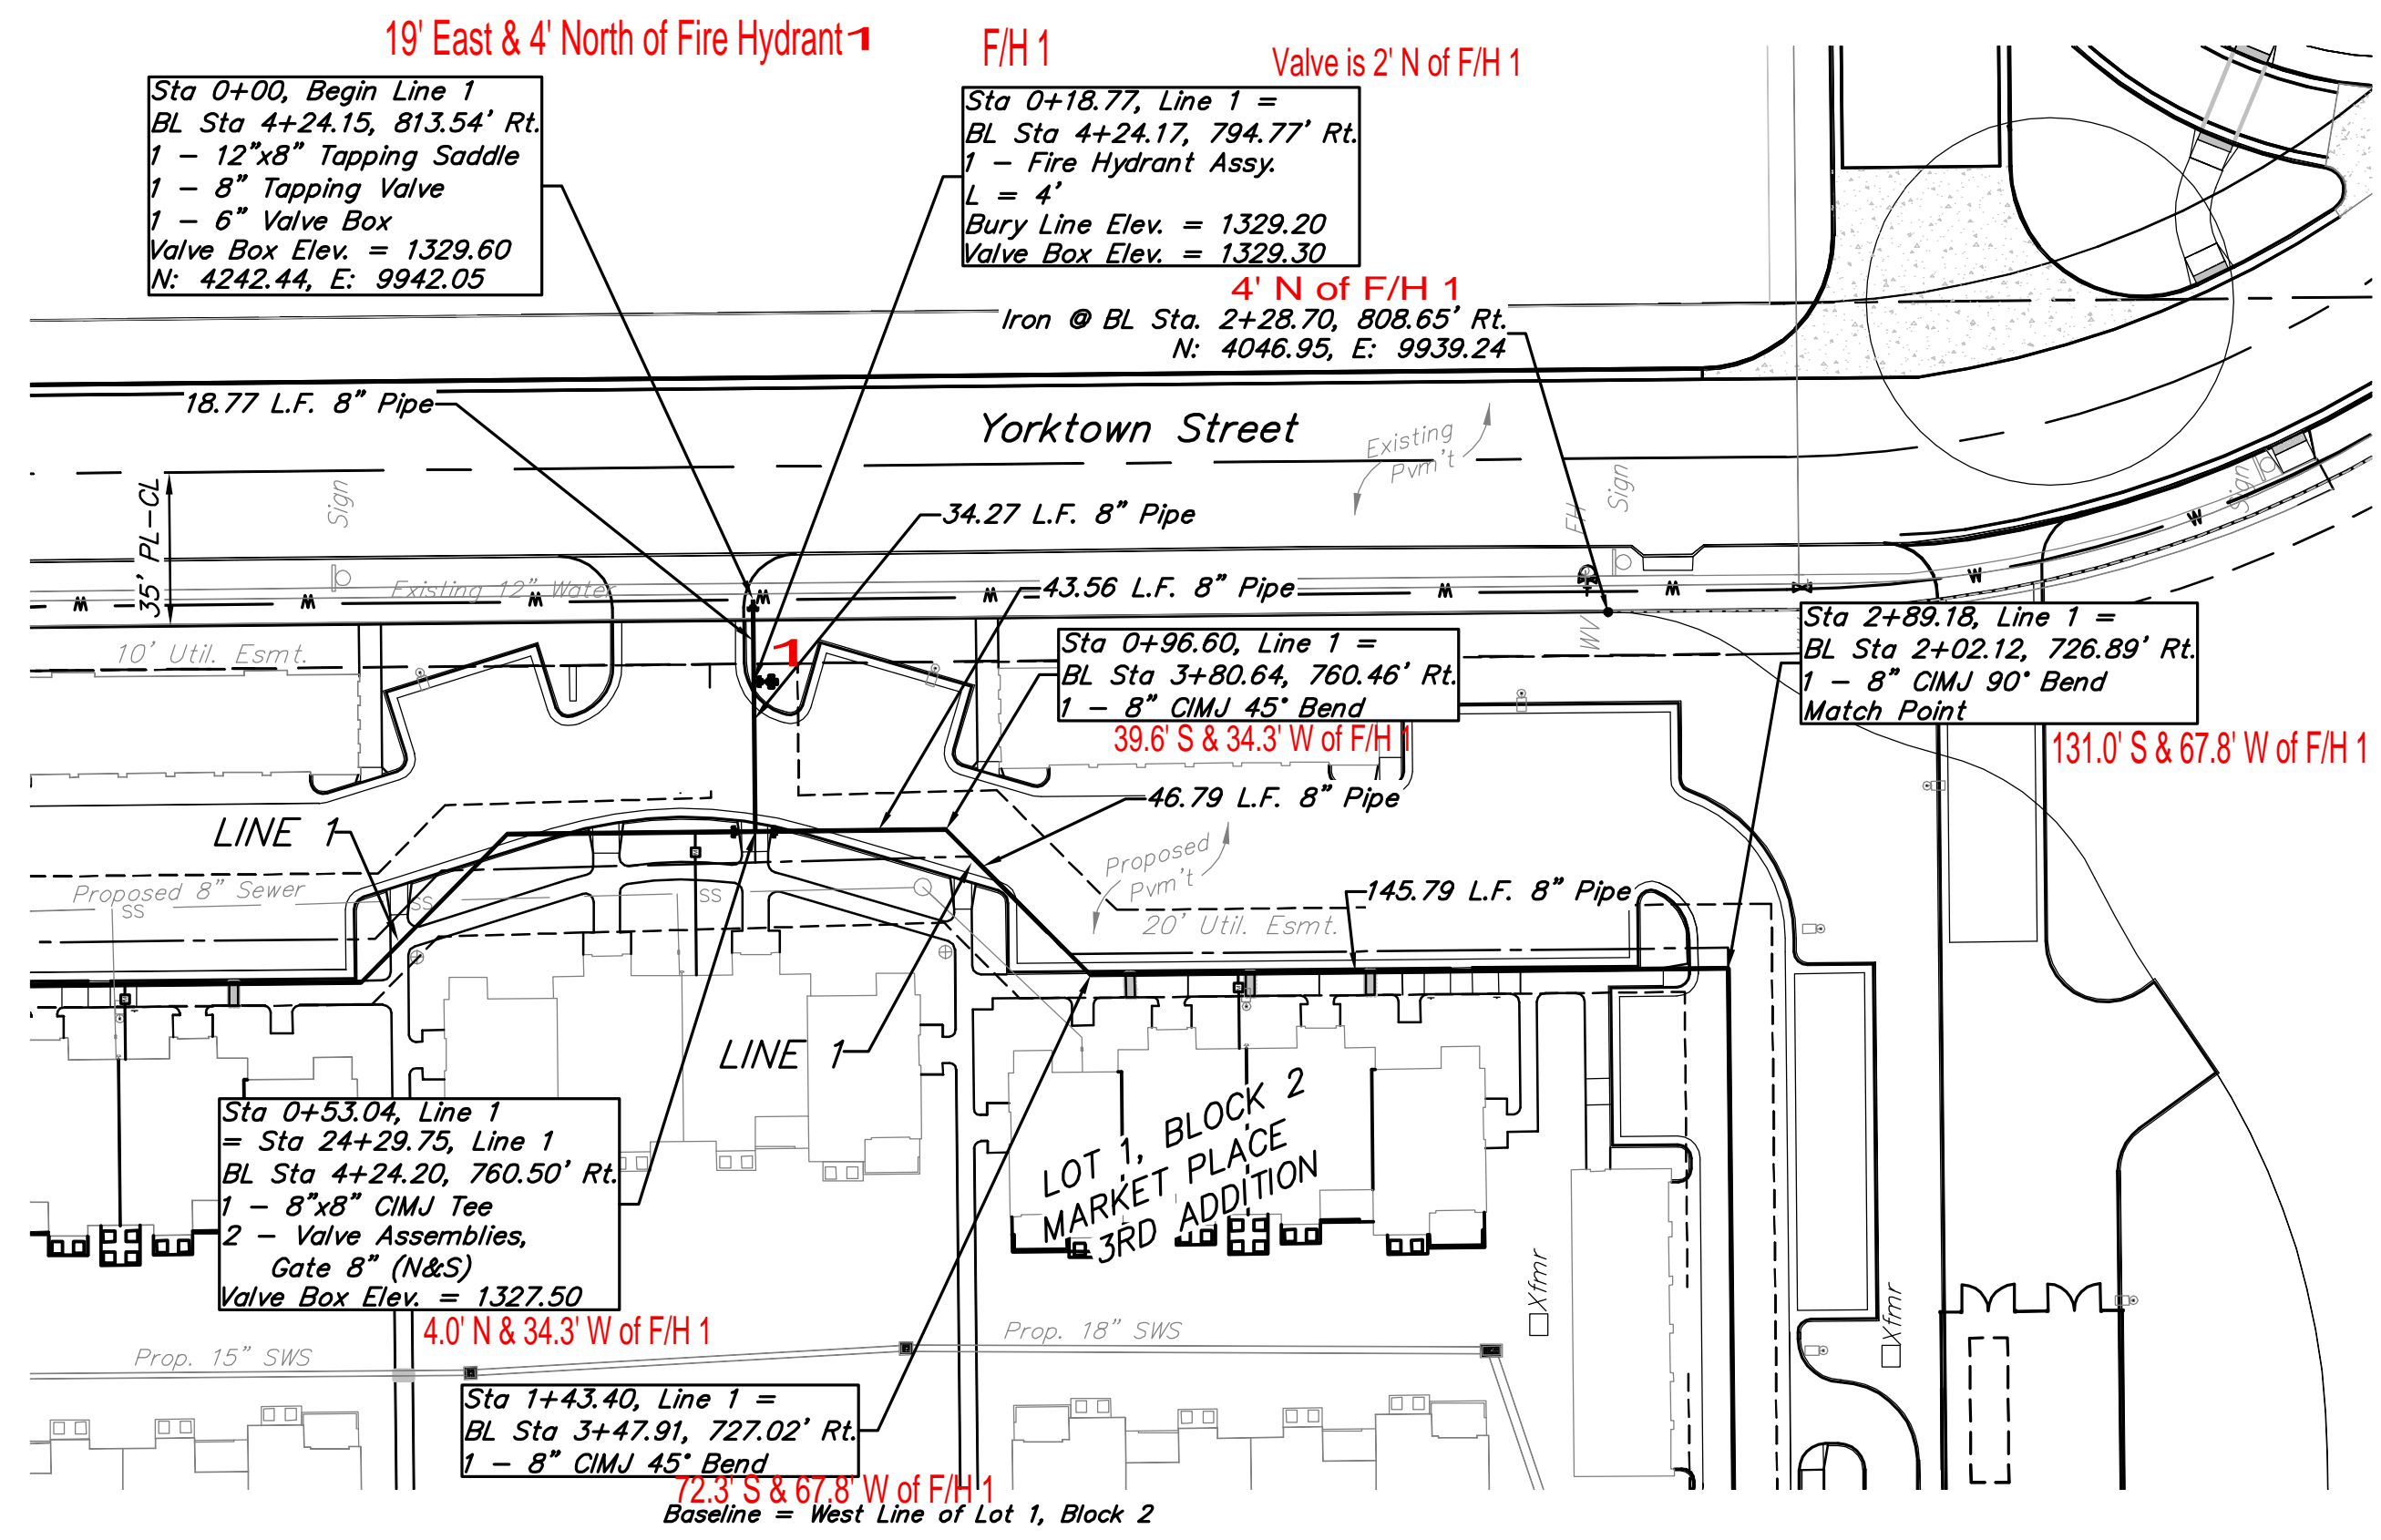 19' East & 4' North of Fire Hydrant 1
F/H 1
Valve is 2' N of F/H 1
Sta 0+00, Begin Line 1
BL Sta 4+24.15, 813.54' Rt.
1 - 12"x8" Tapping Saddle
1 - 8" Tapping Valve
1 - 6" Valve Box
Valve Box Elev. = 1329.60
N: 4242.44, E: 9942.05
Sta 0+18.77, Line 1 =
BL Sta 4+24.17, 794.77' Rt.
1 - Fire Hydrant Assy.
L = 4'
Bury Line Elev. = 1329.20
Valve Box Elev. = 1329.30
4' N of F/H 1
Iron @ BL Sta. 2+28.70, 808.65' Rt.
N: 4046.95, E: 9939.24
18.77 L.F. 8" Pipe
Yorktown Street
Existing
Pvm't
35' PL-CL
Sign
34.27 L.F. 8" Pipe
FH
Sign
Sign
Existing 12" Water
W
W
W
W
W
W
W
W
W
43.56 L.F. 8" Pipe
10' Util. Esmt.
1
WV
Sta 0+96.60, Line 1 =
BL Sta 3+80.64, 760.46' Rt.
1 - 8" CIMJ 45° Bend
39.6' S & 34.3' W of F/H 1
Sta 2+89.18, Line 1 =
BL Sta 2+02.12, 726.89' Rt.
1 - 8" CIMJ 90° Bend
Match Point
131.0' S & 67.8' W of F/H 1
46.79 L.F. 8" Pipe
LINE 1
Proposed
Pvm't
Proposed 8" Sewer
SS
SS
SS
145.79 L.F. 8" Pipe
20' Util. Esmt.
LINE 1
LOT 1, BLOCK 2
MARKET PLACE
3RD ADDITION
Sta 0+53.04, Line 1
= Sta 24+29.75, Line 1
BL Sta 4+24.20, 760.50' Rt.
1 - 8"x8" CIMJ Tee
2 - Valve Assemblies,
Gate 8" (N&S)
Valve Box Elev. = 1327.50
4.0' N & 34.3' W of F/H 1
Xfmr
Xfmr
Prop. 15" SWS
Prop. 18" SWS
Sta 1+43.40, Line 1 =
BL Sta 3+47.91, 727.02' Rt.
1 - 8" CIMJ 45° Bend
72.3' S & 67.8' W of F/H 1
Baseline = West Line of Lot 1, Block 2